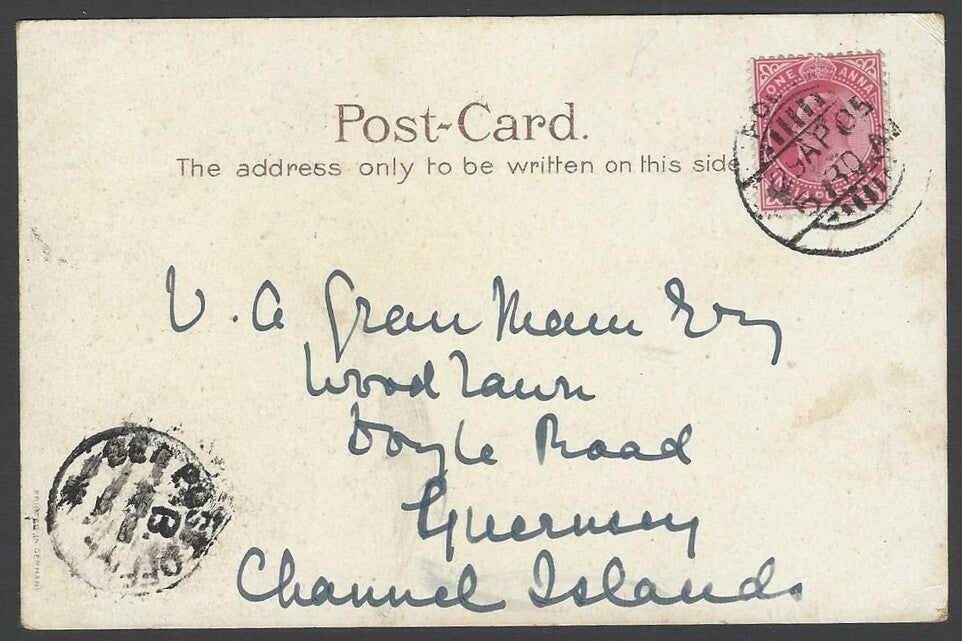 Post-Card.
The address only to be written on this side
ONE ANNA
AP 05
30 AM
V. A Gran
Woodlawn
Doyle Road
Guernsey
Channel Islands
POST OFFICE
B.
PRINTED IN GERMANY